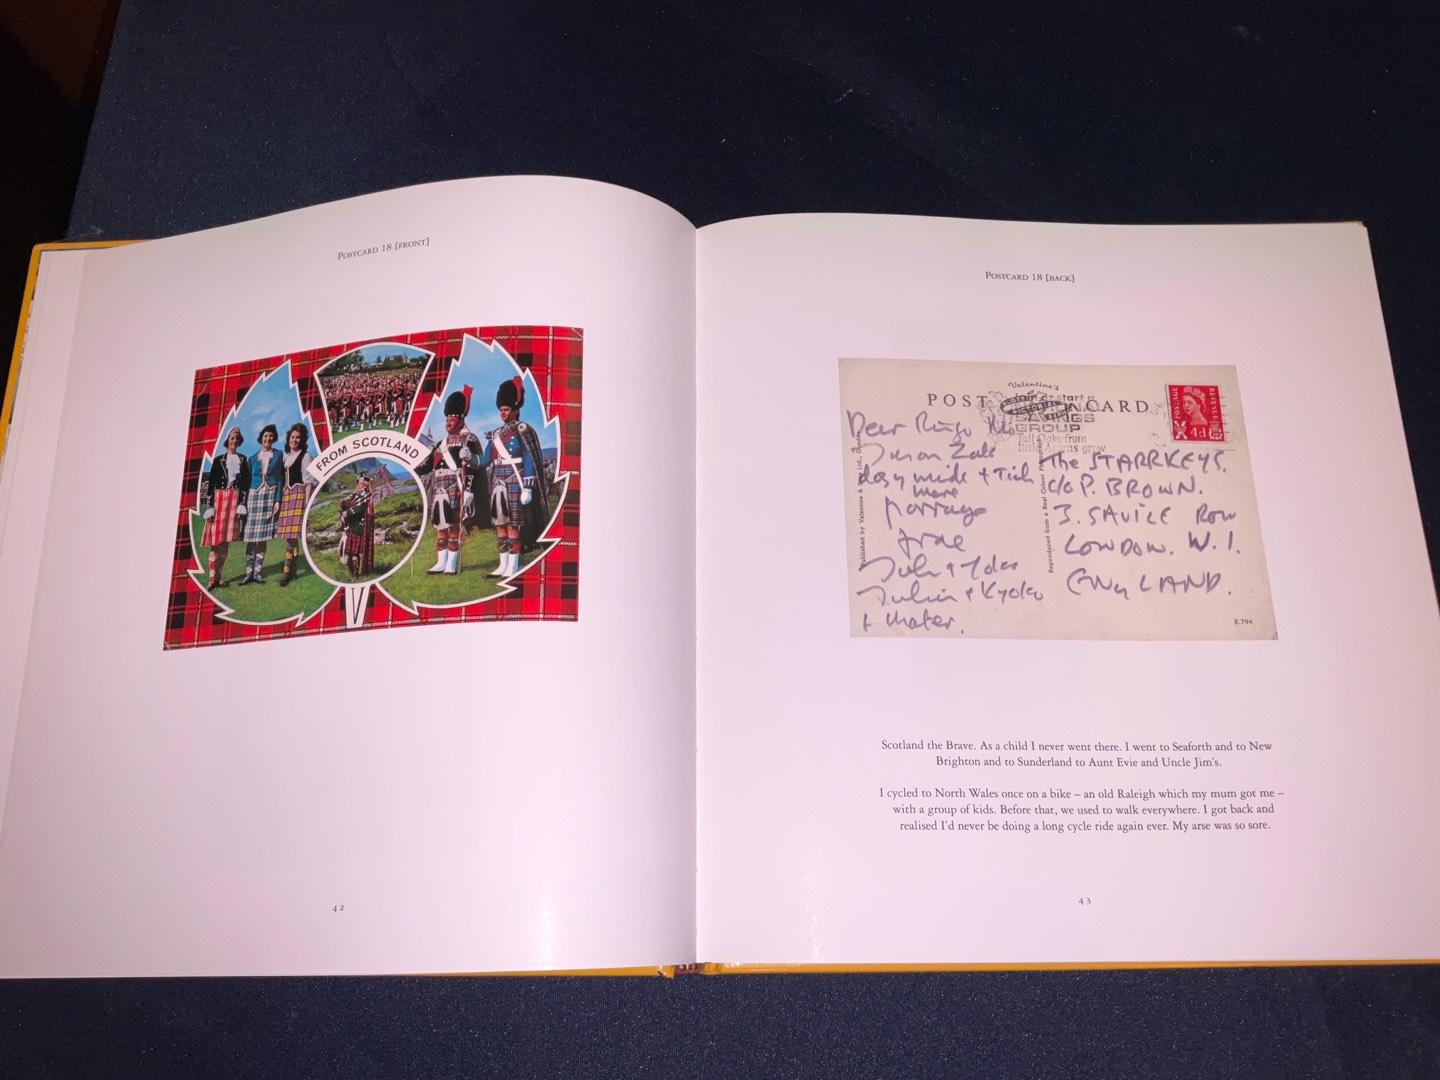 POSTCARD 18 [FRONT]
FROM SCOTLAND
42
POSTCARD 18 [BACK]
POST CARD
Valentine's
start a
SAVINGS
GROUP
Tall Oaks from
little Acorns grow
POSTAGE
REVENUE
4d
Dear Ringo Mo
Zak
+ Tich
more
Love
John + Yoko
Julian + Kyoko
+ Mater.
The STARRKEYS.
c/o P. BROWN.
3. SAVILE ROW
LONDON. W.1.
ENGLAND.
Published by Valentine & Sons Ltd.,
Reproduced from a Real Colour Photograph
E.794
Scotland the Brave. As a child I never went there. I went to Seaforth and to New
Brighton and to Sunderland to Aunt Evie and Uncle Jim's.
I cycled to North Wales once on a bike – an old Raleigh which my mum got me –
with a group of kids. Before that, we used to walk everywhere. I got back and
realised I'd never be doing a long cycle ride again ever. My arse was so sore.
43